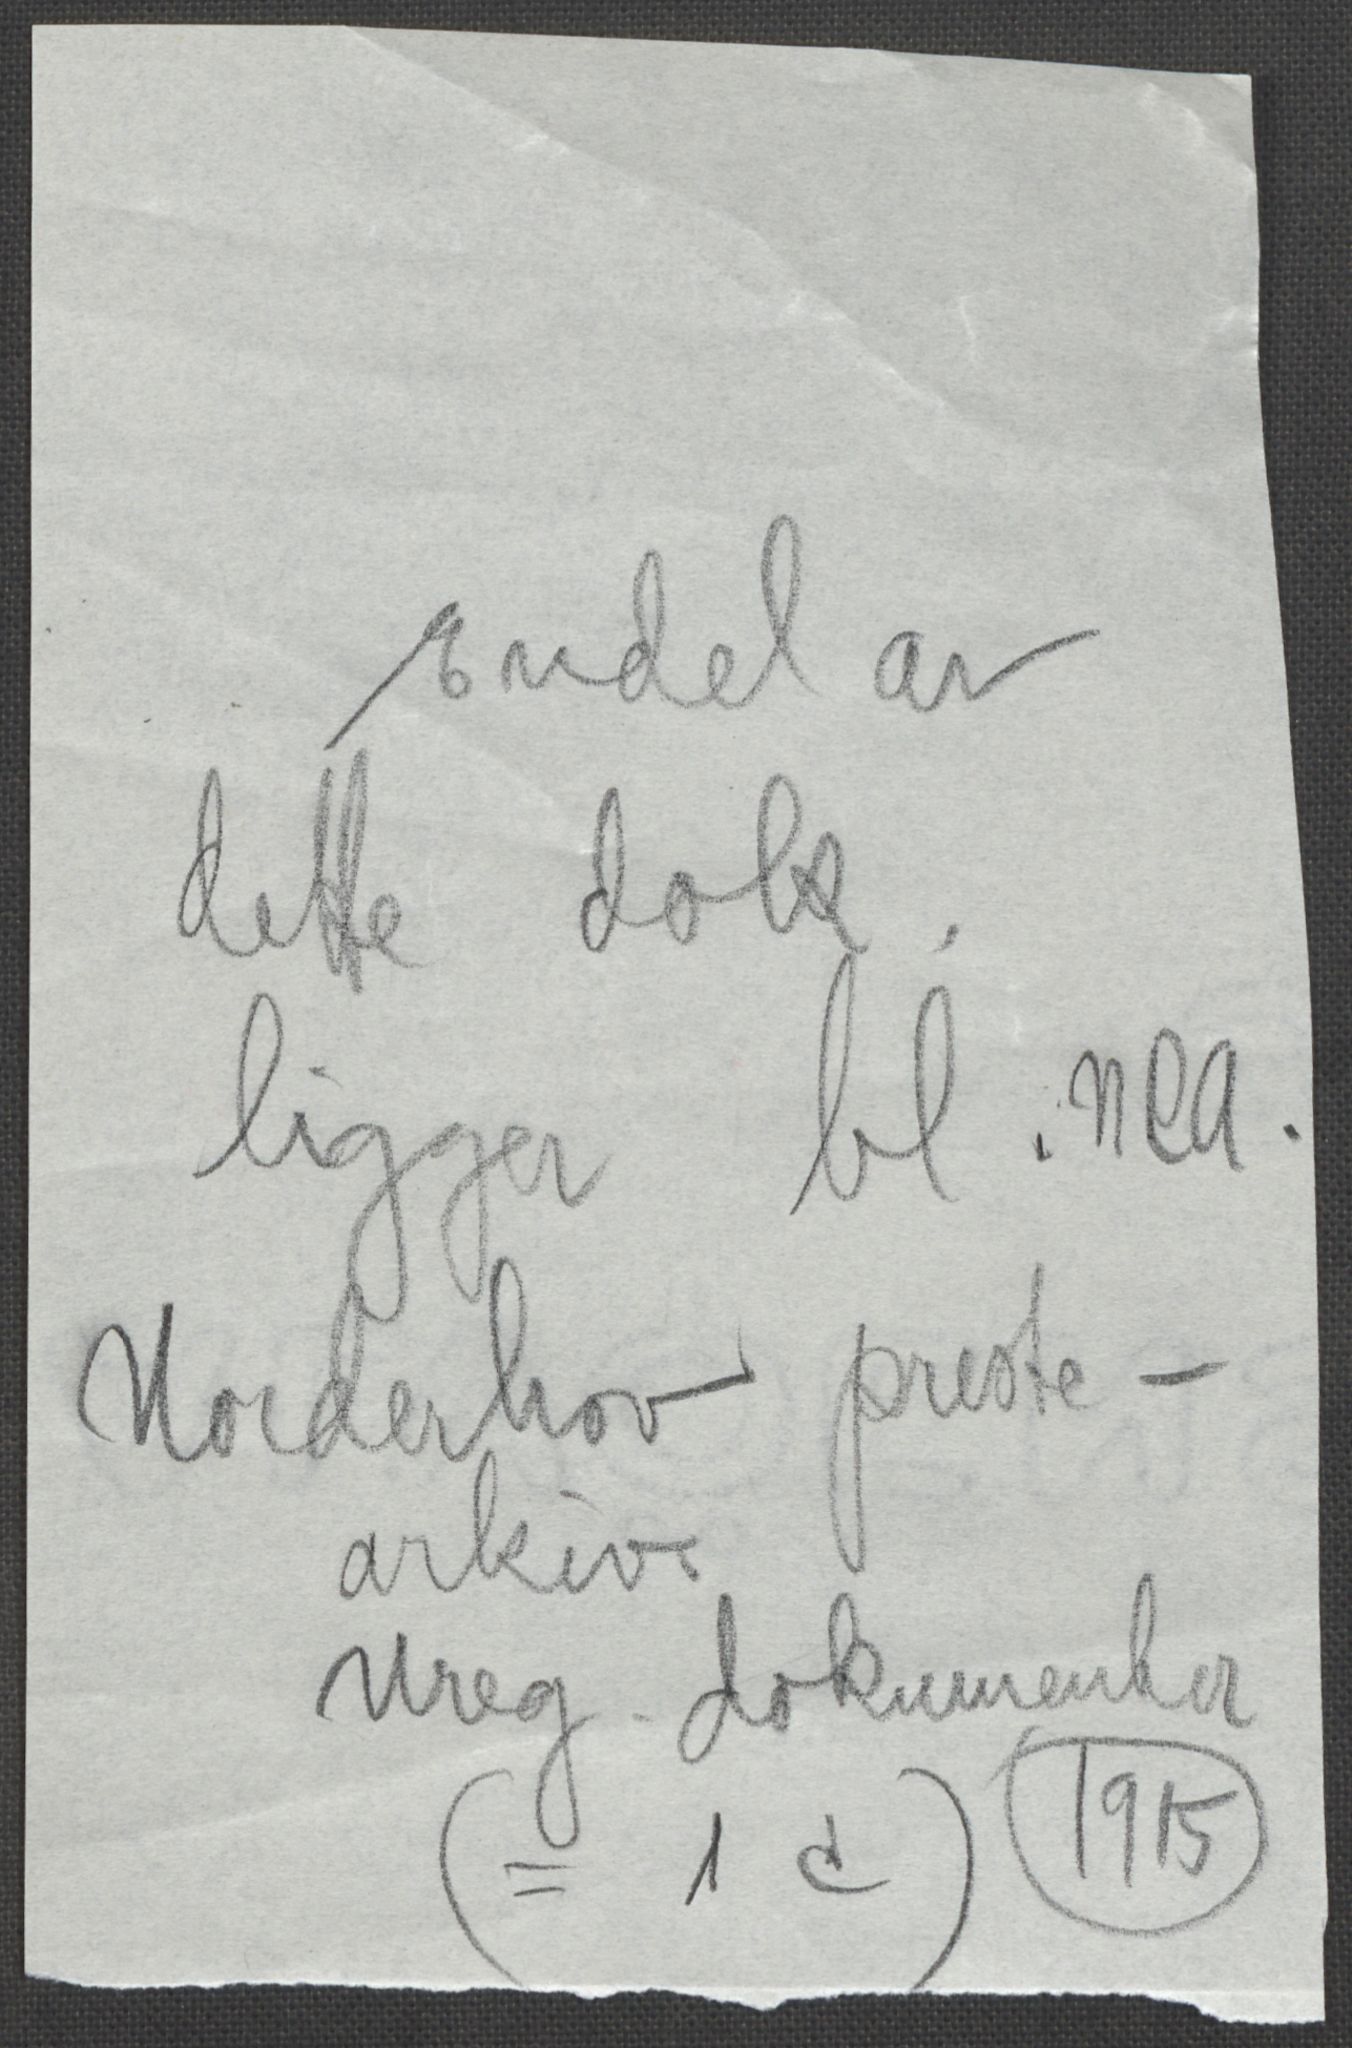 Endel av
dette dok.
ligger bl. NRA.
Norderhov preste-
arkiv.
Ureg. dokumenter
(= 1 c) 1915